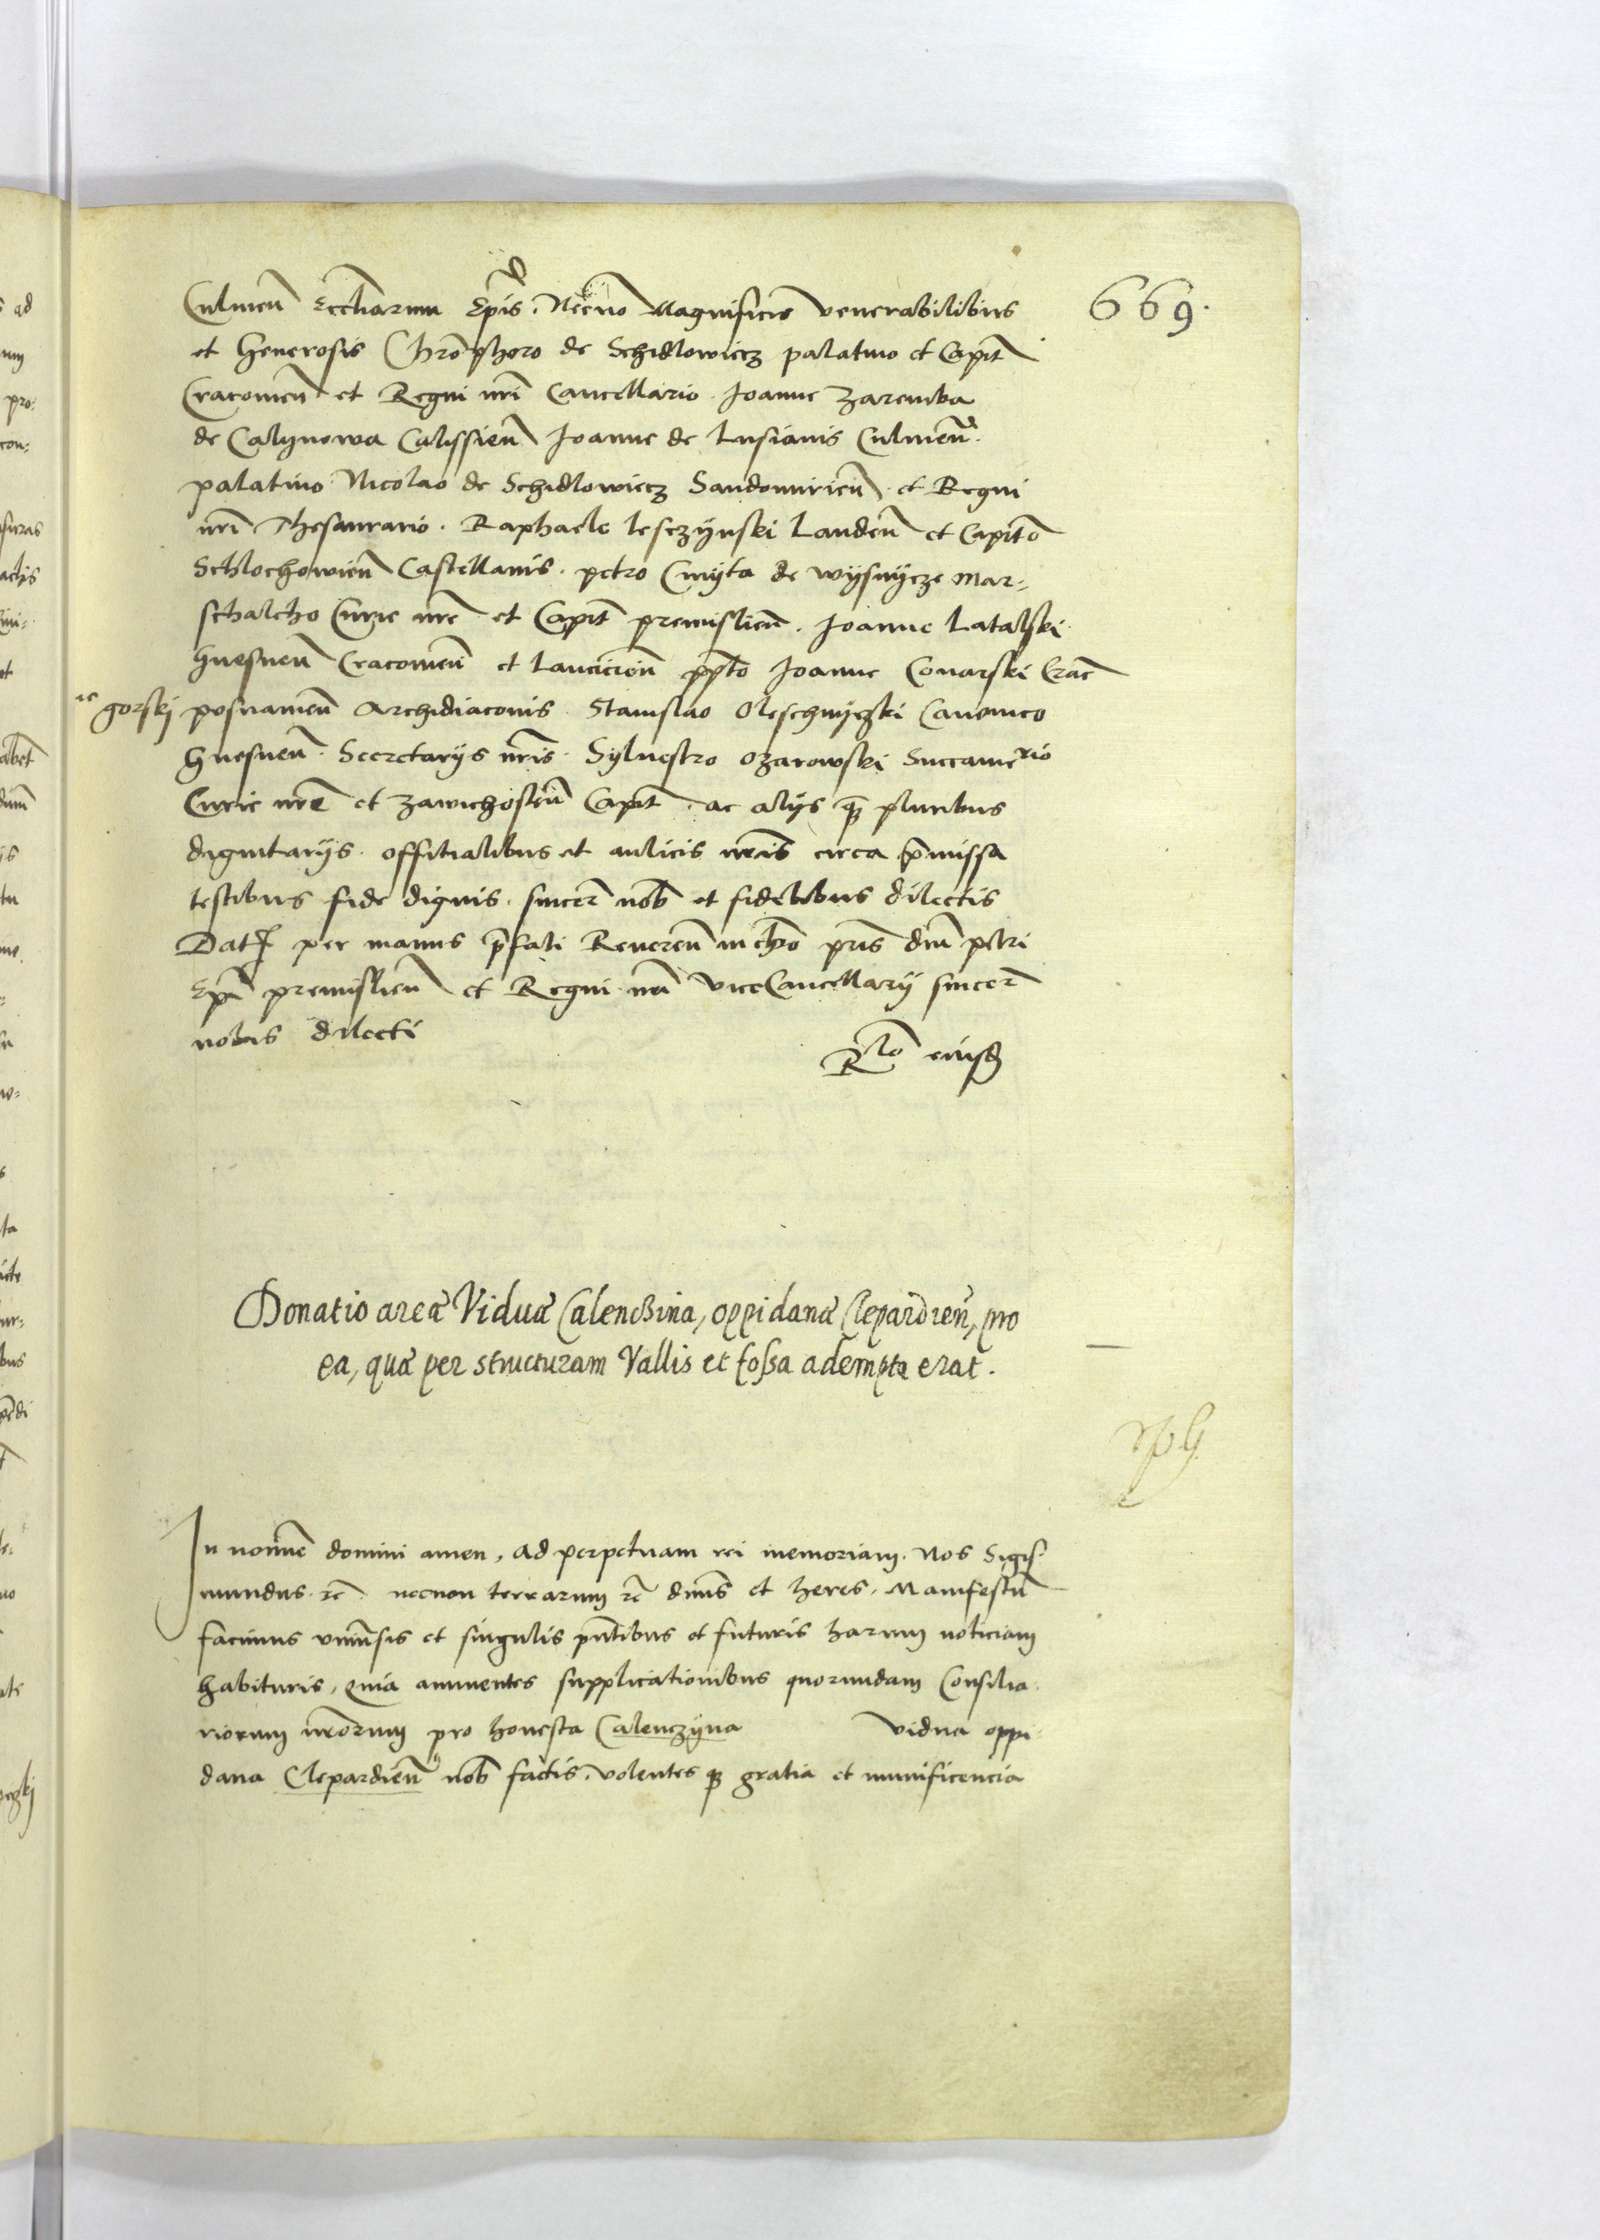 669.
Culmeñ Ecclãrum Ep̃is. Necño Magnificis venerabilibus
et Generosis Chrõphoro de Schidlowiecz palatino et Capit̃
Cracovieñ et Regni nrĩ Cancellario. Joanne Zaremba
de Calynowa Calissieñ Joanne de Lusianis Culmeñ.
palatino Nicolao de Schidlowiecz Sandomirieñ et Regni
nrĩ Thesaurario. Raphaele lesczynski Landeñ et Capitõ
Schlochowieñ Castellanis. petro Cmyta de wysnycze Mar-
schalcho Curie nrẽ et Capit̃ premislieñ. Joanne Latalski
Gnesneñ Cracovieñ et Lancicieñ pp̃to Joanne Conarski Crac̃
gorski posnanieñ Archidiaconis. Stanislao Oleschnyczki Canonico
Gnesneñ. Secretarys nrĩs. Sylvestro Ozarowski Succamerio
Curie nrẽ et Zawichosteñ Capit̃. ac alys q̃ pluribus
dignitarys. offitialibus et aulicis nrĩs circa p̃missa
testibus fide dignis. sincer̃ nob̃ et fidelibus dilectis
Dat̃ per manus p̃fati Revereñ in chrõ pris̃ dñi petri
Ep̃i premislieñ et Regni nrĩ ViceCancellary sincer̃
nobis dilecti
Rlõ eiusd̃
Donatio areæ Viduæ Calencßina, oppidanæ Clepardieñ, pro
ea, quæ per structuram Vallis et fossa adempta erat.
In nomĩe domini amen, ad perpetuam rei memoriam. Nos Sigis-
mundus rc̃. necnon terrarum rc̃ dñus et heres. Manifestũ
facimus uniṽsis et singulis pñtibus et futuris harum noticiam
habituris, Quia annuentes supplicationibus quorundam Consilia-
riorum nrõrum pro honesta Calenczyna vidua oppi-
dana Clepardieñ nob̃ factis. volentes q̃ gratia et munificencia